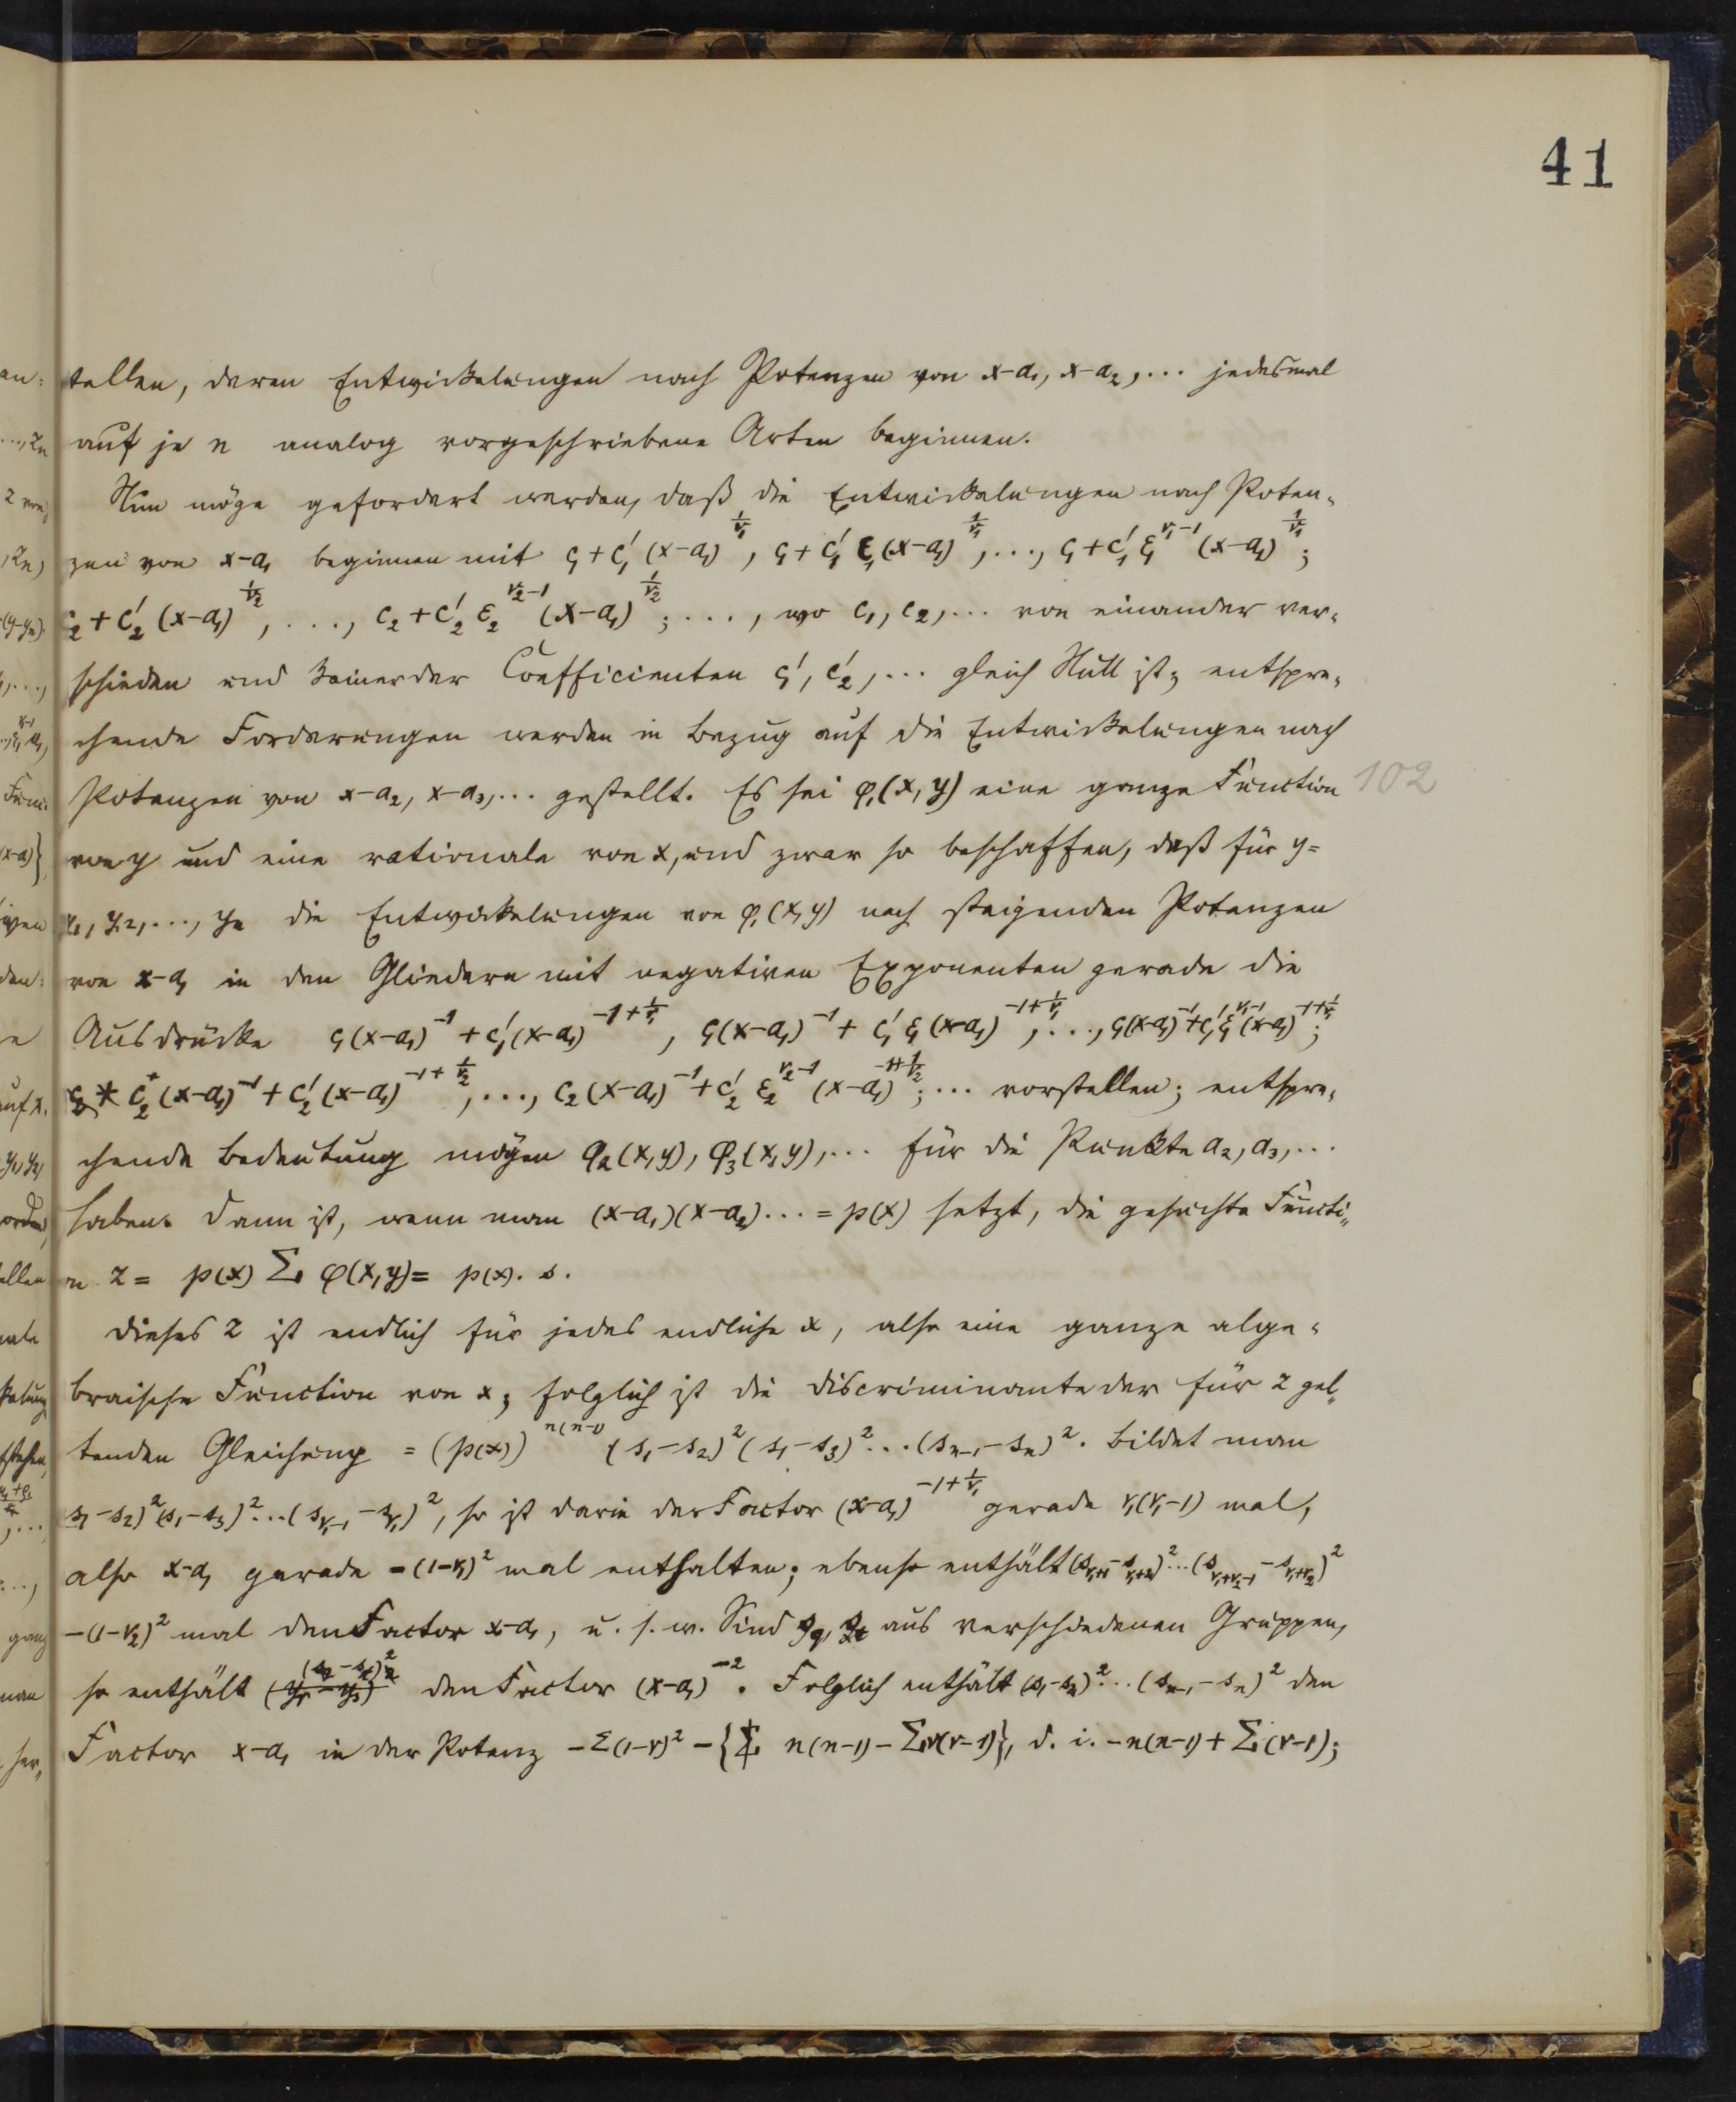 41
tellen, deren Entwickelungen nach Potenzen von x-a₁, x-a₂, ... jedesmal
auf je n analog vorgeschriebene Arten beginnen.
Nun möge gefordert werden, daß die Entwickelungen nach Poten-
zen von x-a₁ beginnen mit c₁+c₁'(x-a₁)^{1/r₁}, c₁+c₁'ε₁(x-a₁)^{1/r₁}, ..., c₁+c₁'ε₁^{r₁-1}(x-a₁)^{1/r₁};
c₂+c₂'(x-a₁)^{1/r₂}, ..., c₂+c₂'ε₂^{r₂-1}(x-a₁)^{1/r₂}; ..., wo c₁, c₂, ... von einander ver-
schieden und keiner der Coefficienten c₁', c₂', ... gleich Null ist; entspre-
chende Forderungen werden in Bezug auf die Entwickelungen nach
Potenzen von x-a₂, x-a₃, ... gestellt. Es sei φ₁(x,y) eine ganze Function
102
von y und eine rationale von x, und zwar so beschaffen, daß für y=
y₁, y₂, ..., yₙ die Entwickelungen von φ₁(x,y) nach steigenden Potenzen
von x-a₁ in den Gliedern mit negativen Exponenten gerade die
Ausdrücke c₁(x-a₁)^{-1}+c₁'(x-a₁)^{-1+1/r₁}, c₁(x-a₁)^{-1}+c₁'ε₁(x-a₁)^{-1+1/r₁}, ..., c₁(x-a₁)^{-1}+c₁'ε₁^{r₁-1}(x-a₁)^{-1+1/r₁};
c₂(x-a₁)^{-1}+c₂'(x-a₁)^{-1+1/r₂}, ..., c₂(x-a₁)^{-1}+c₂'ε₂^{r₂-1}(x-a₁)^{-1+1/r₂}; ... vorstellen; entspre-
chende Bedeutung mögen φ₂(x,y), φ₃(x,y), ... für die Punkte a₂, a₃, ...
haben. Dann ist, wenn man (x-a₁)(x-a₂)... = p(x) setzt, die gesuchte Functi-
on z = p(x) Σ φ(x,y) = p(x). s.
Dieses z ist endlich für jedes endliche x, also eine ganze alge-
braische Function von x; folglich ist die Discriminante der für z gel-
tenden Gleichung = (p(x))^{n(n-1)} (s₁-s₂)²(s₁-s₃)²...(sₙ₋₁-sₙ)². Bildet man
(s₁-s₂)²(s₁-s₃)²...(s_{r₁-1}-s_{r₁})², so ist darin der Factor (x-a₁)^{-1+1/r₁} gerade r₁(r₁-1) mal,
also x-a₁ gerade -(1-r₁)² mal enthalten; ebenso enthält (s_{r₁+1}-s_{r₁+2})²...(s_{r₁+r₂-1}-s_{r₁+r₂})²
-(1-r₂)² mal den Factor x-a₁, u. s. w. Sind aus verschiedenen Gruppen,
so enthält den Factor (x-a₁)^{-2}. Folglich enthält (s₁-s₂)²...(sₙ₋₁-sₙ)² den
Factor x-a₁ in der Potenz -Σ(1-r)² -{n(n-1)-Σr(r-1)}, d. i. -n(n-1)+Σ(r-1);